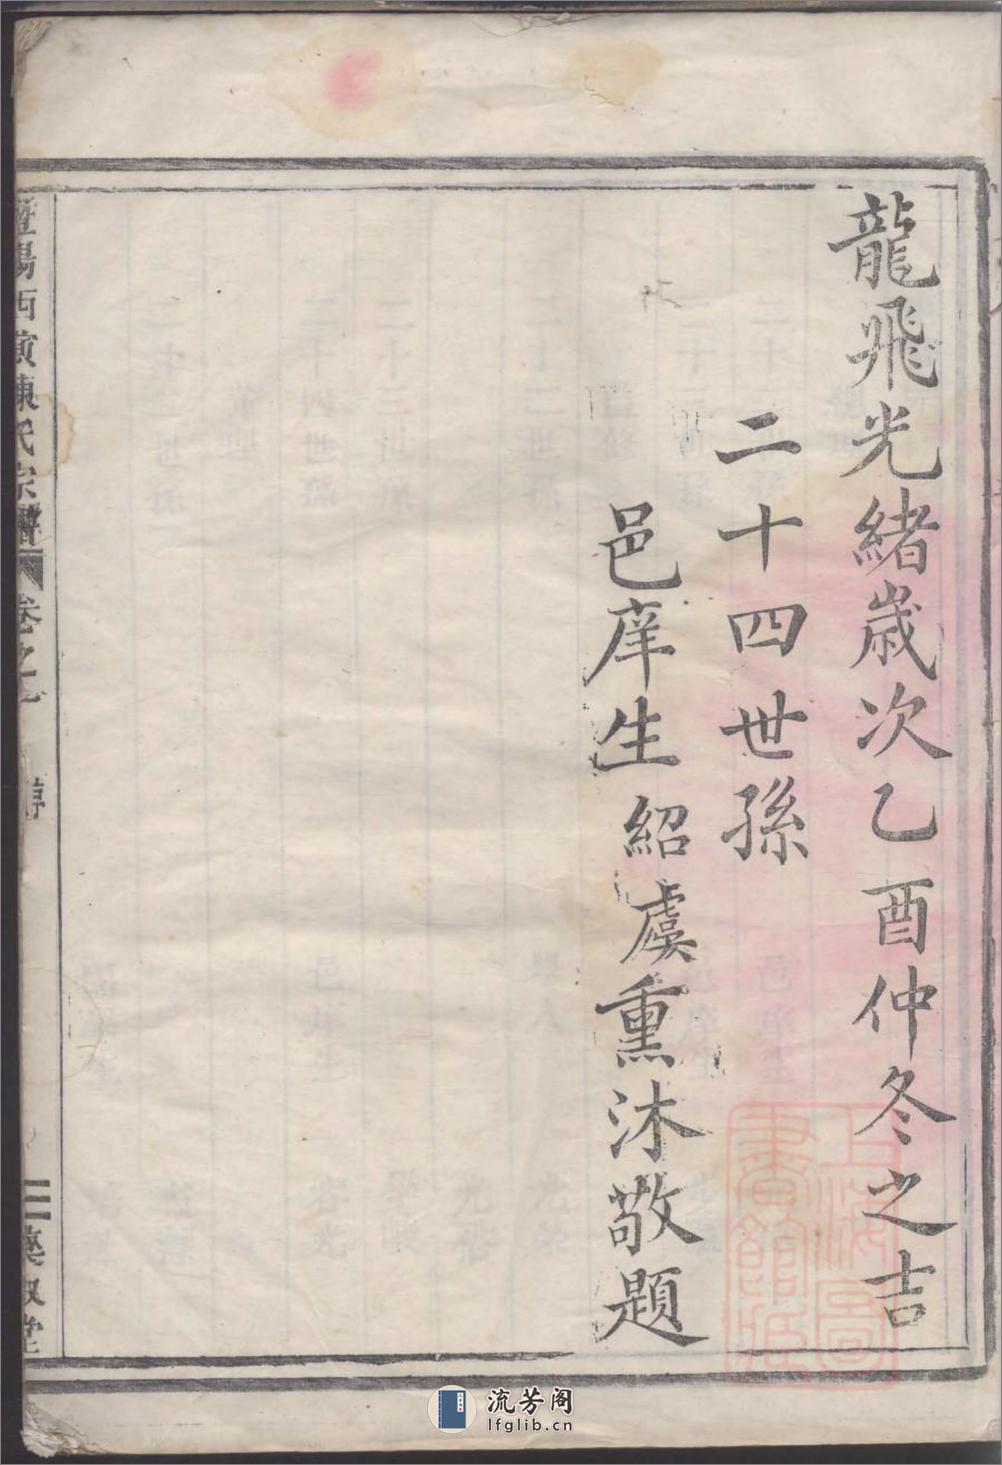 龍飛光緒歲次乙酉仲冬之吉
二十四世孫
邑庠生紹虞熏沐敬題
暨陽西黃陳氏宗譜
卷之
上海圖書館藏
流芳阁
lfglib.cn